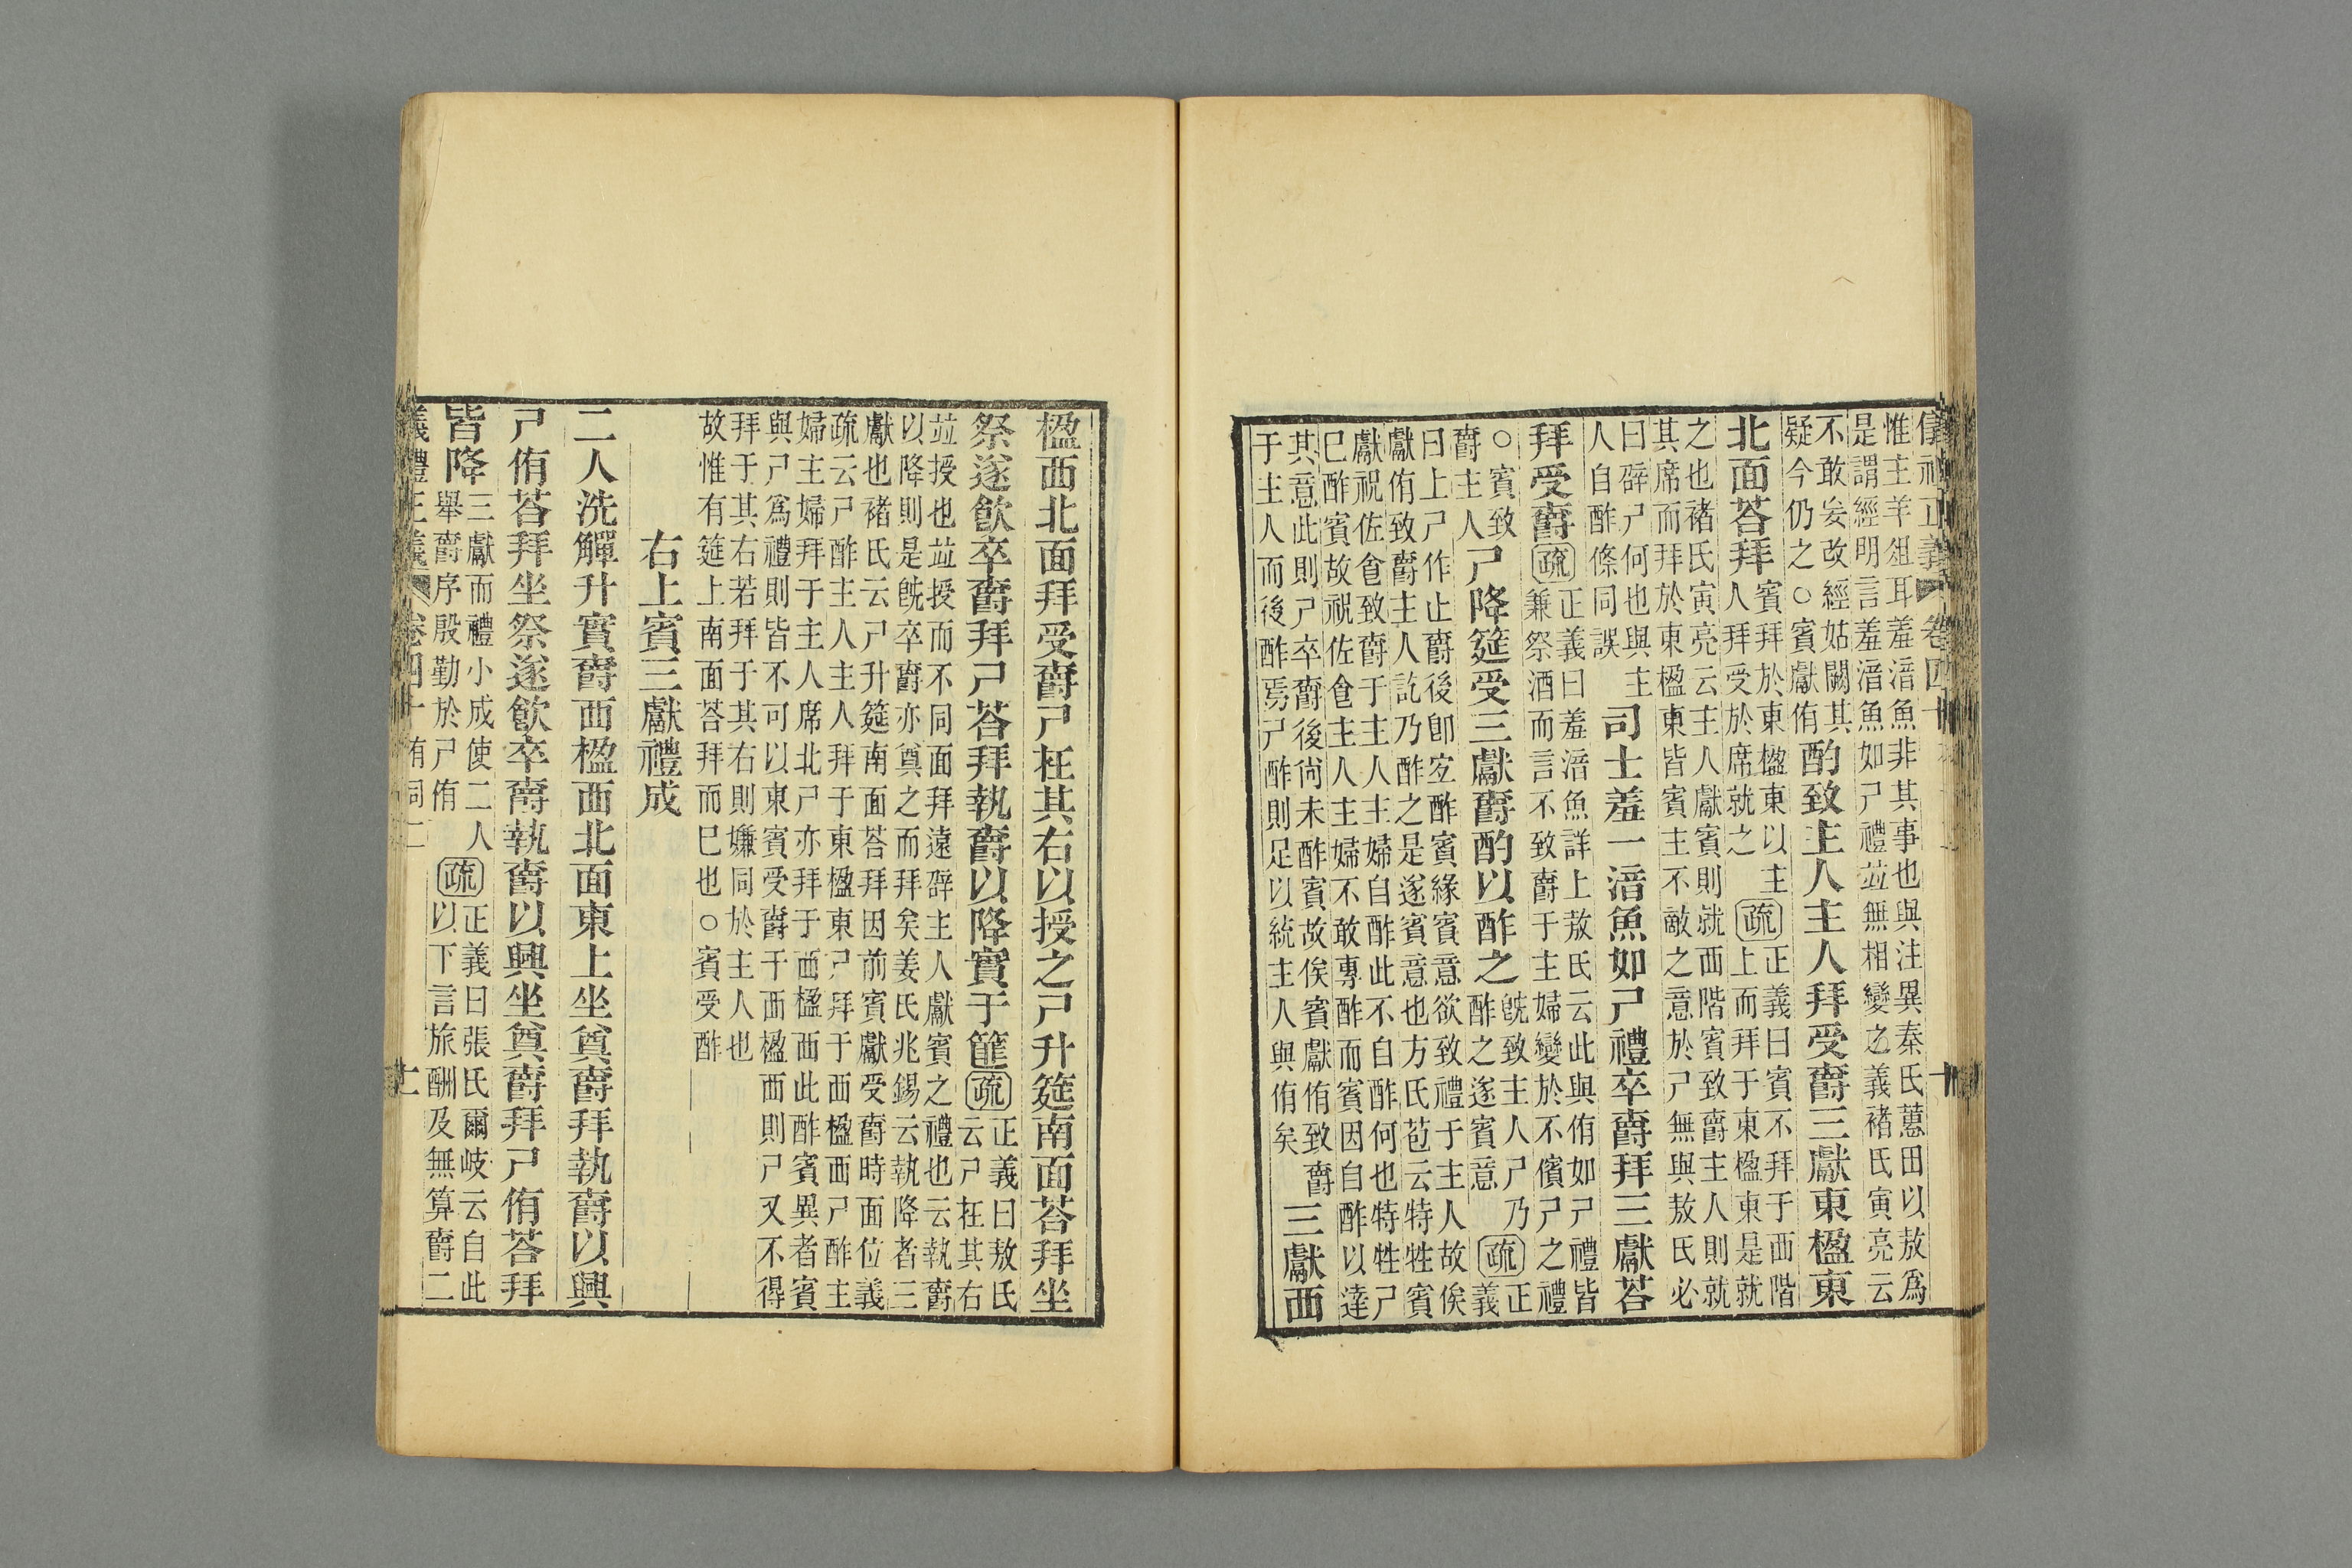 惟主羊俎耳羞湆魚非其事也與注異秦氏蕙田以敖爲
是謂經明言羞湆魚如尸禮並無相變之義褚氏寅亮云
不敢妄改經姑闕其
疑今仍之○賓獻侑
酌致主人主人拜受爵三獻東楹東
北面荅拜
賓拜於東楹東以主
人拜受於席就之
疏
正義曰賓不拜于西階
上而拜于東楹東是就
之也褚氏寅亮云主人獻賓則就西階賓致爵主人則就
其席而拜於東楹東皆賓主不敵之意於尸無與敖氏必
曰辟尸何也與主
人自酢條同誤
司士羞一湆魚如尸禮卒爵拜三獻荅
拜受爵
疏
正義曰羞湆魚詳上敖氏云此與侑如尸禮皆
兼祭酒而言不致爵于主婦變於不儐尸之禮
○賓致
爵主人
尸降筵受三獻爵酌以酢之
旣致主人尸乃
酢之遂賓意
疏
正
義
曰上尸作止爵後卽宐酢賓緣賓意欲致禮于主人故俟
獻侑致爵主人訖乃酢之是遂賓意也方氏苞云特牲賓
獻祝佐食致爵于主人主婦自酢此不自酢何也特牲尸
已酢賓故祝佐食主人主婦不敢專酢而賓因自酢以達
其意此則尸卒爵後尙未酢賓故俟賓獻侑致爵
于主人而後酢焉尸酢則足以統主人與侑矣
三獻西
楹西北面拜受爵尸在其右以授之尸升筵南面荅拜坐
祭遂飮卒爵拜尸荅拜執爵以降實于篚
疏
正義曰敖氏
云尸在其右
並授也並授而不同面拜遠辟主人獻賓之禮也云執爵
以降則是旣卒爵亦奠之而拜矣姜氏兆錫云執降者三
獻也褚氏云尸升筵南面荅拜因前賓獻受爵時面位義
疏云尸酢主人主人拜于東楹東尸拜于西楹西尸酢主
婦主婦拜于主人席北尸亦拜于西楹西此酢賓異者賓
與尸爲禮則皆不可以東賓受爵于西楹西則尸又不得
拜于其右若拜于其右則嫌同於主人也
故惟有筵上南面荅拜而已也○賓受酢
右上賓三獻禮成
二人洗觶升實爵西楹西北面東上坐奠爵拜執爵以興
尸侑荅拜坐祭遂飮卒爵執爵以興坐奠爵拜尸侑荅拜
皆降
三獻而禮小成使二人
舉爵序殷勤於尸侑
疏
正義曰張氏爾岐云自此
以下言旅酬及無算爵二